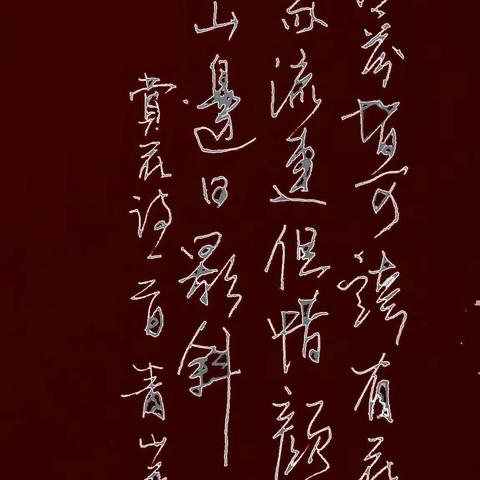 皆可有花
流連但惜顏
山邊日影斜
賞花詩一首青山